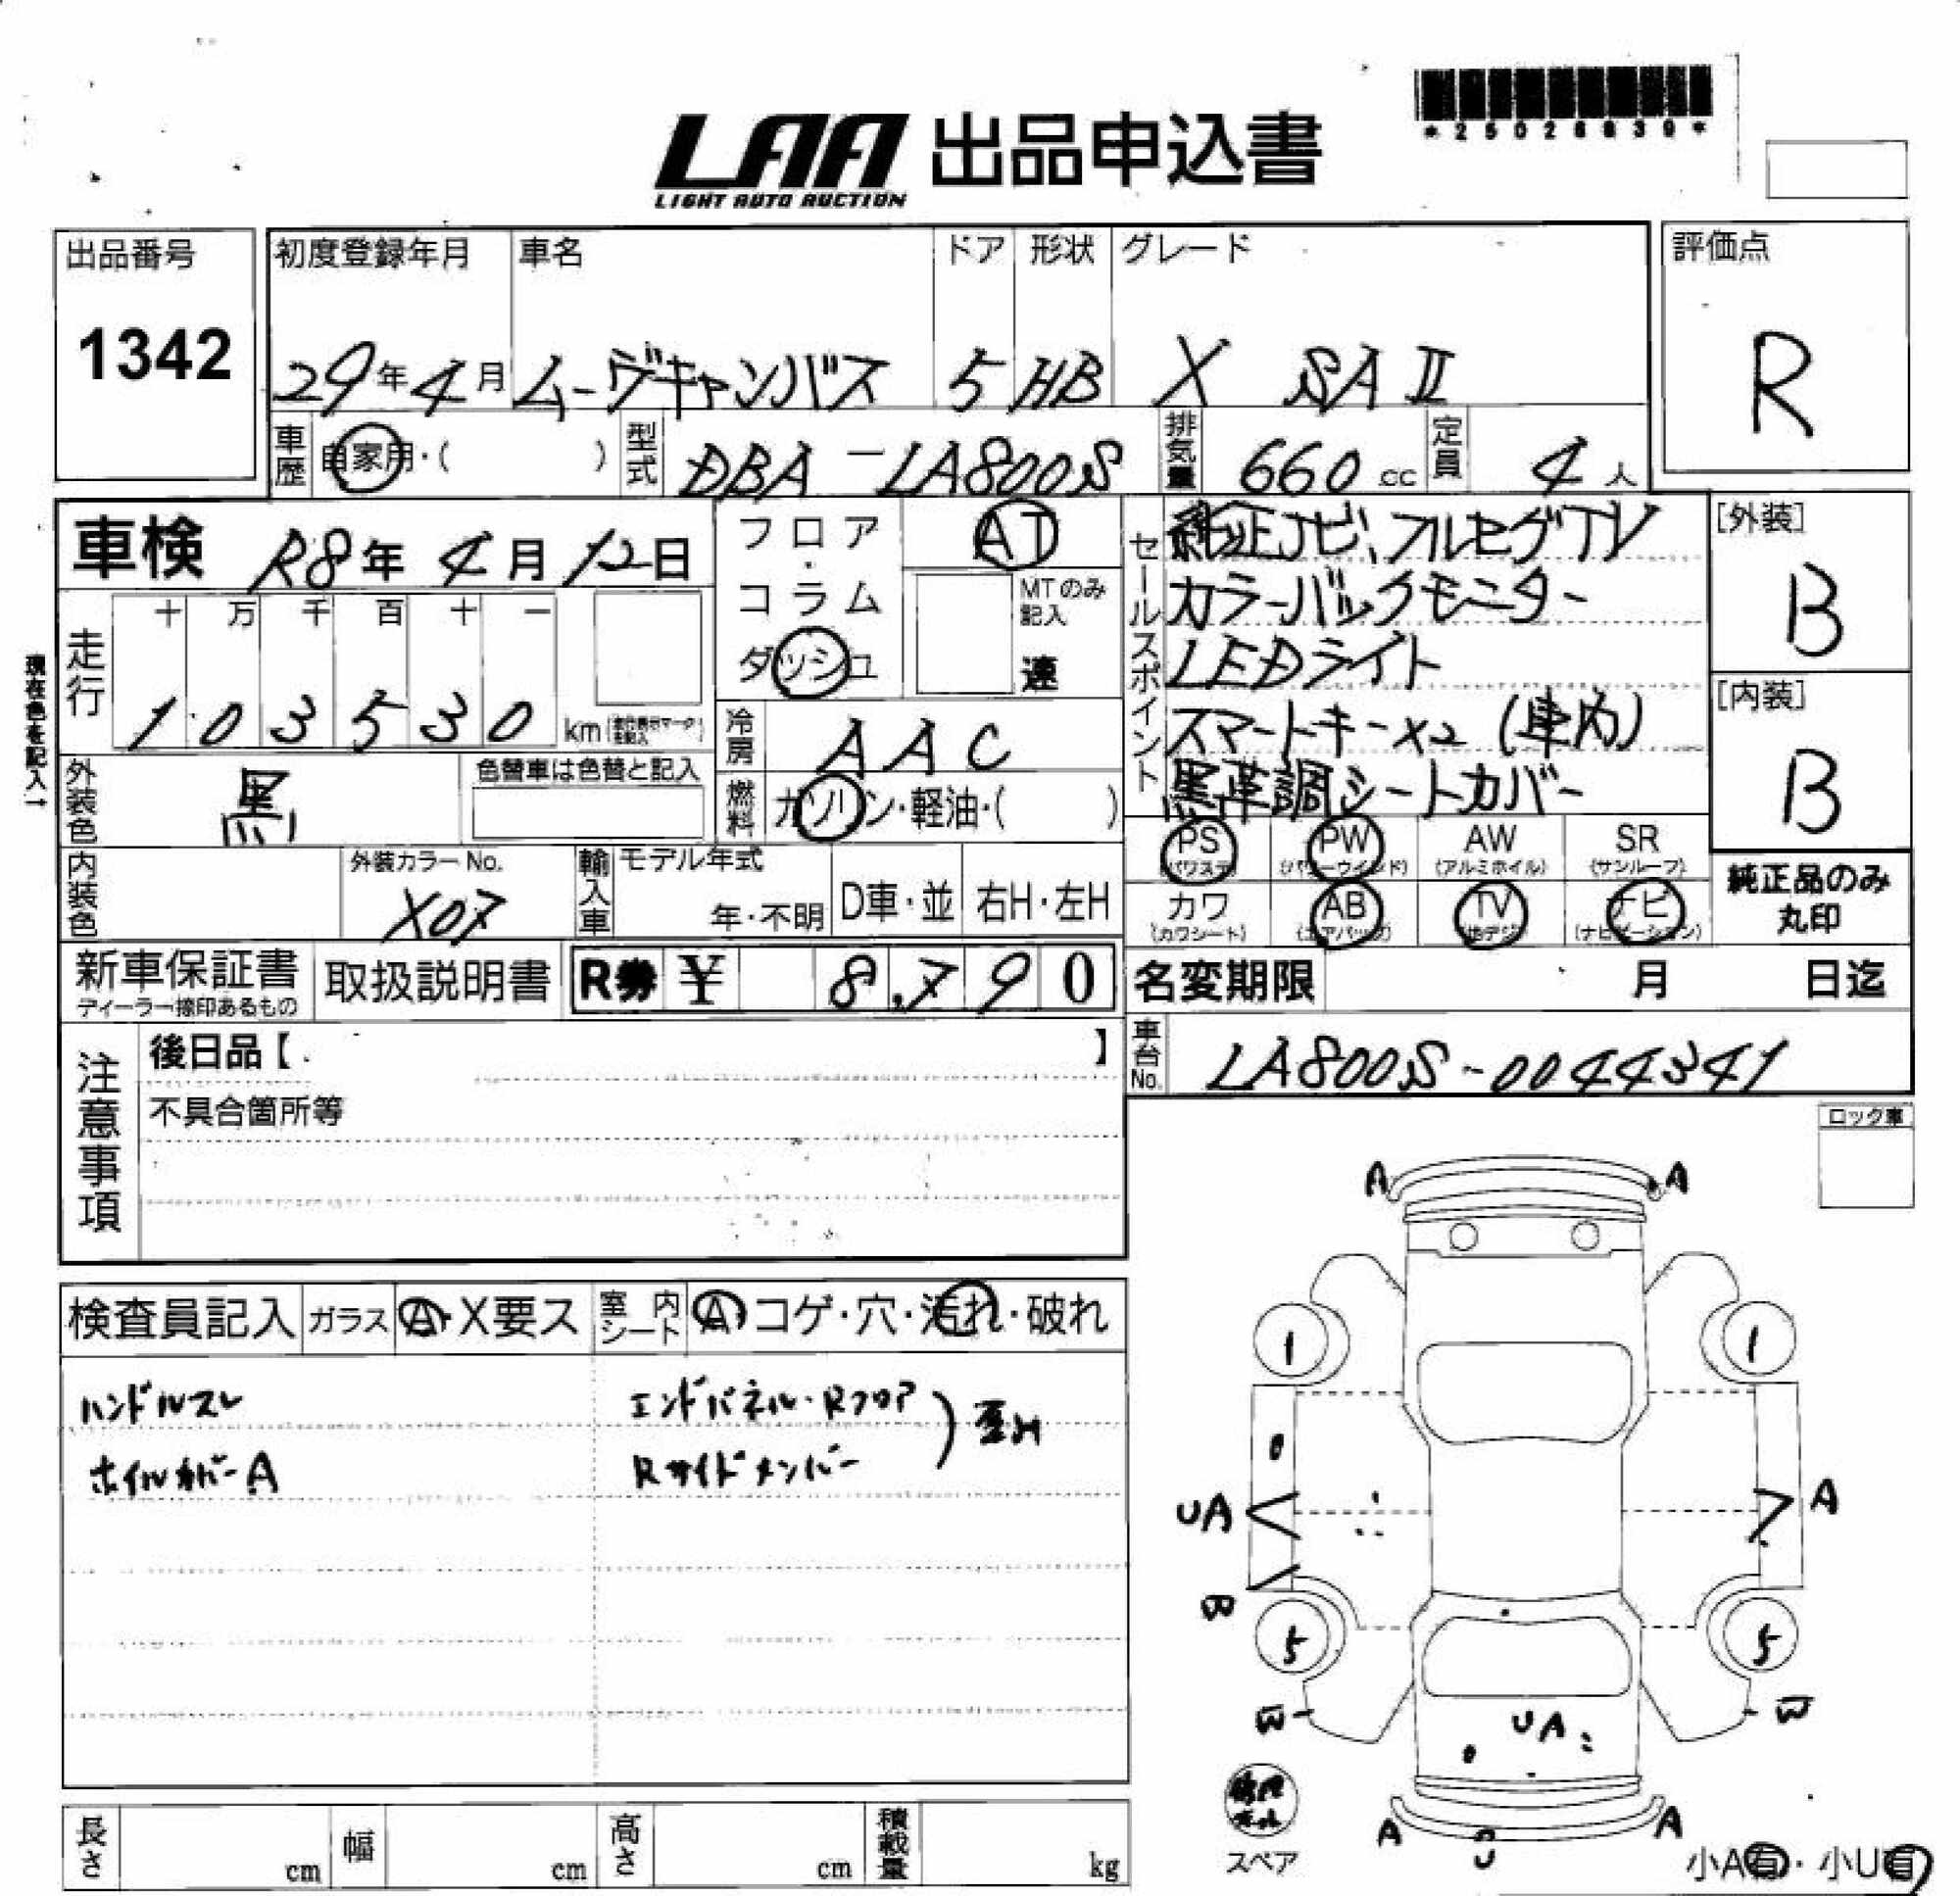 *25026939*
LAA 出品申込書
LIGHT AUTO AUCTION
出品番号
1342
初度登録年月
29年4月
車名
ムーヴキャンバス
ドア
5
形状
HB
グレード
X SAⅡ
評価点
R
車歴
自家用・( )
型式
DBA-LA800S
排気量
660cc
定員
4人
車検 R8年4月12日
フロア・コラム
ダッシュ
AT
MTのみ記入
速
セールスポイント
純正ナビ、フルセグTV
カラーバックモニター
LEDライト
スマートキー×2(車内)
黒革調シートカバー
[外装]
B
[内装]
B
現在色を記入→
走行
十 万 千 百 十 一
1 0 3 5 3 0 km
冷房
AAC
外装色
黒
色替車は色替と記入
燃料
ガソリン・軽油・( )
内装色
外装カラーNo.
X07
輸入車
モデル年式
年・不明
D車・並
右H・左H
PS (パワステ)
PW (パワーウインド)
AW (アルミホイル)
SR (サンルーフ)
カワ (カワシート)
AB (エアバッグ)
TV (地デジ)
ナビ (ナビゲーション)
純正品のみ丸印
新車保証書
ディーラー捺印あるもの
取扱説明書
R券 ¥ 8,790
名変期限 月 日迄
車台No.
LA800S-0044341
注意事項
後日品【 】
不具合箇所等
ロック車
検査員記入
ガラス
A・X要ス
室内シート
A・コゲ・穴・汚れ・破れ
ハンドルスレ
ホイルカバーA
エンドパネル・Rフロア
Rサイドメンバー
歪み
A A
1 1
UA A
B
5 5
W W
UA
A U A
修理キット
スペア
小A有・小U有
長さ cm
幅 cm
高さ cm
積載量 kg